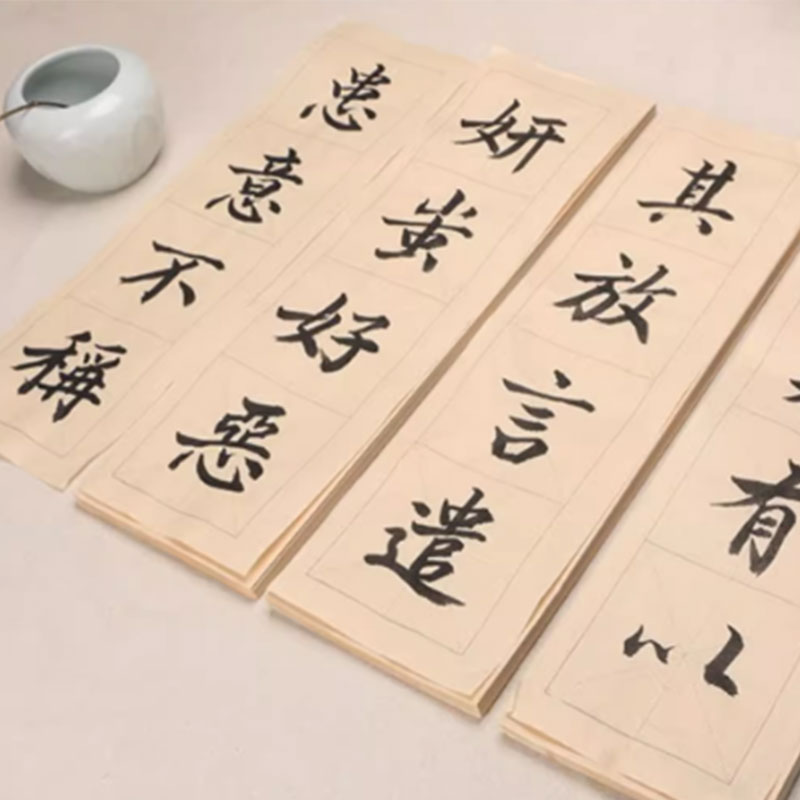 有以
其放言遣
妍蚩好惡
患意不稱